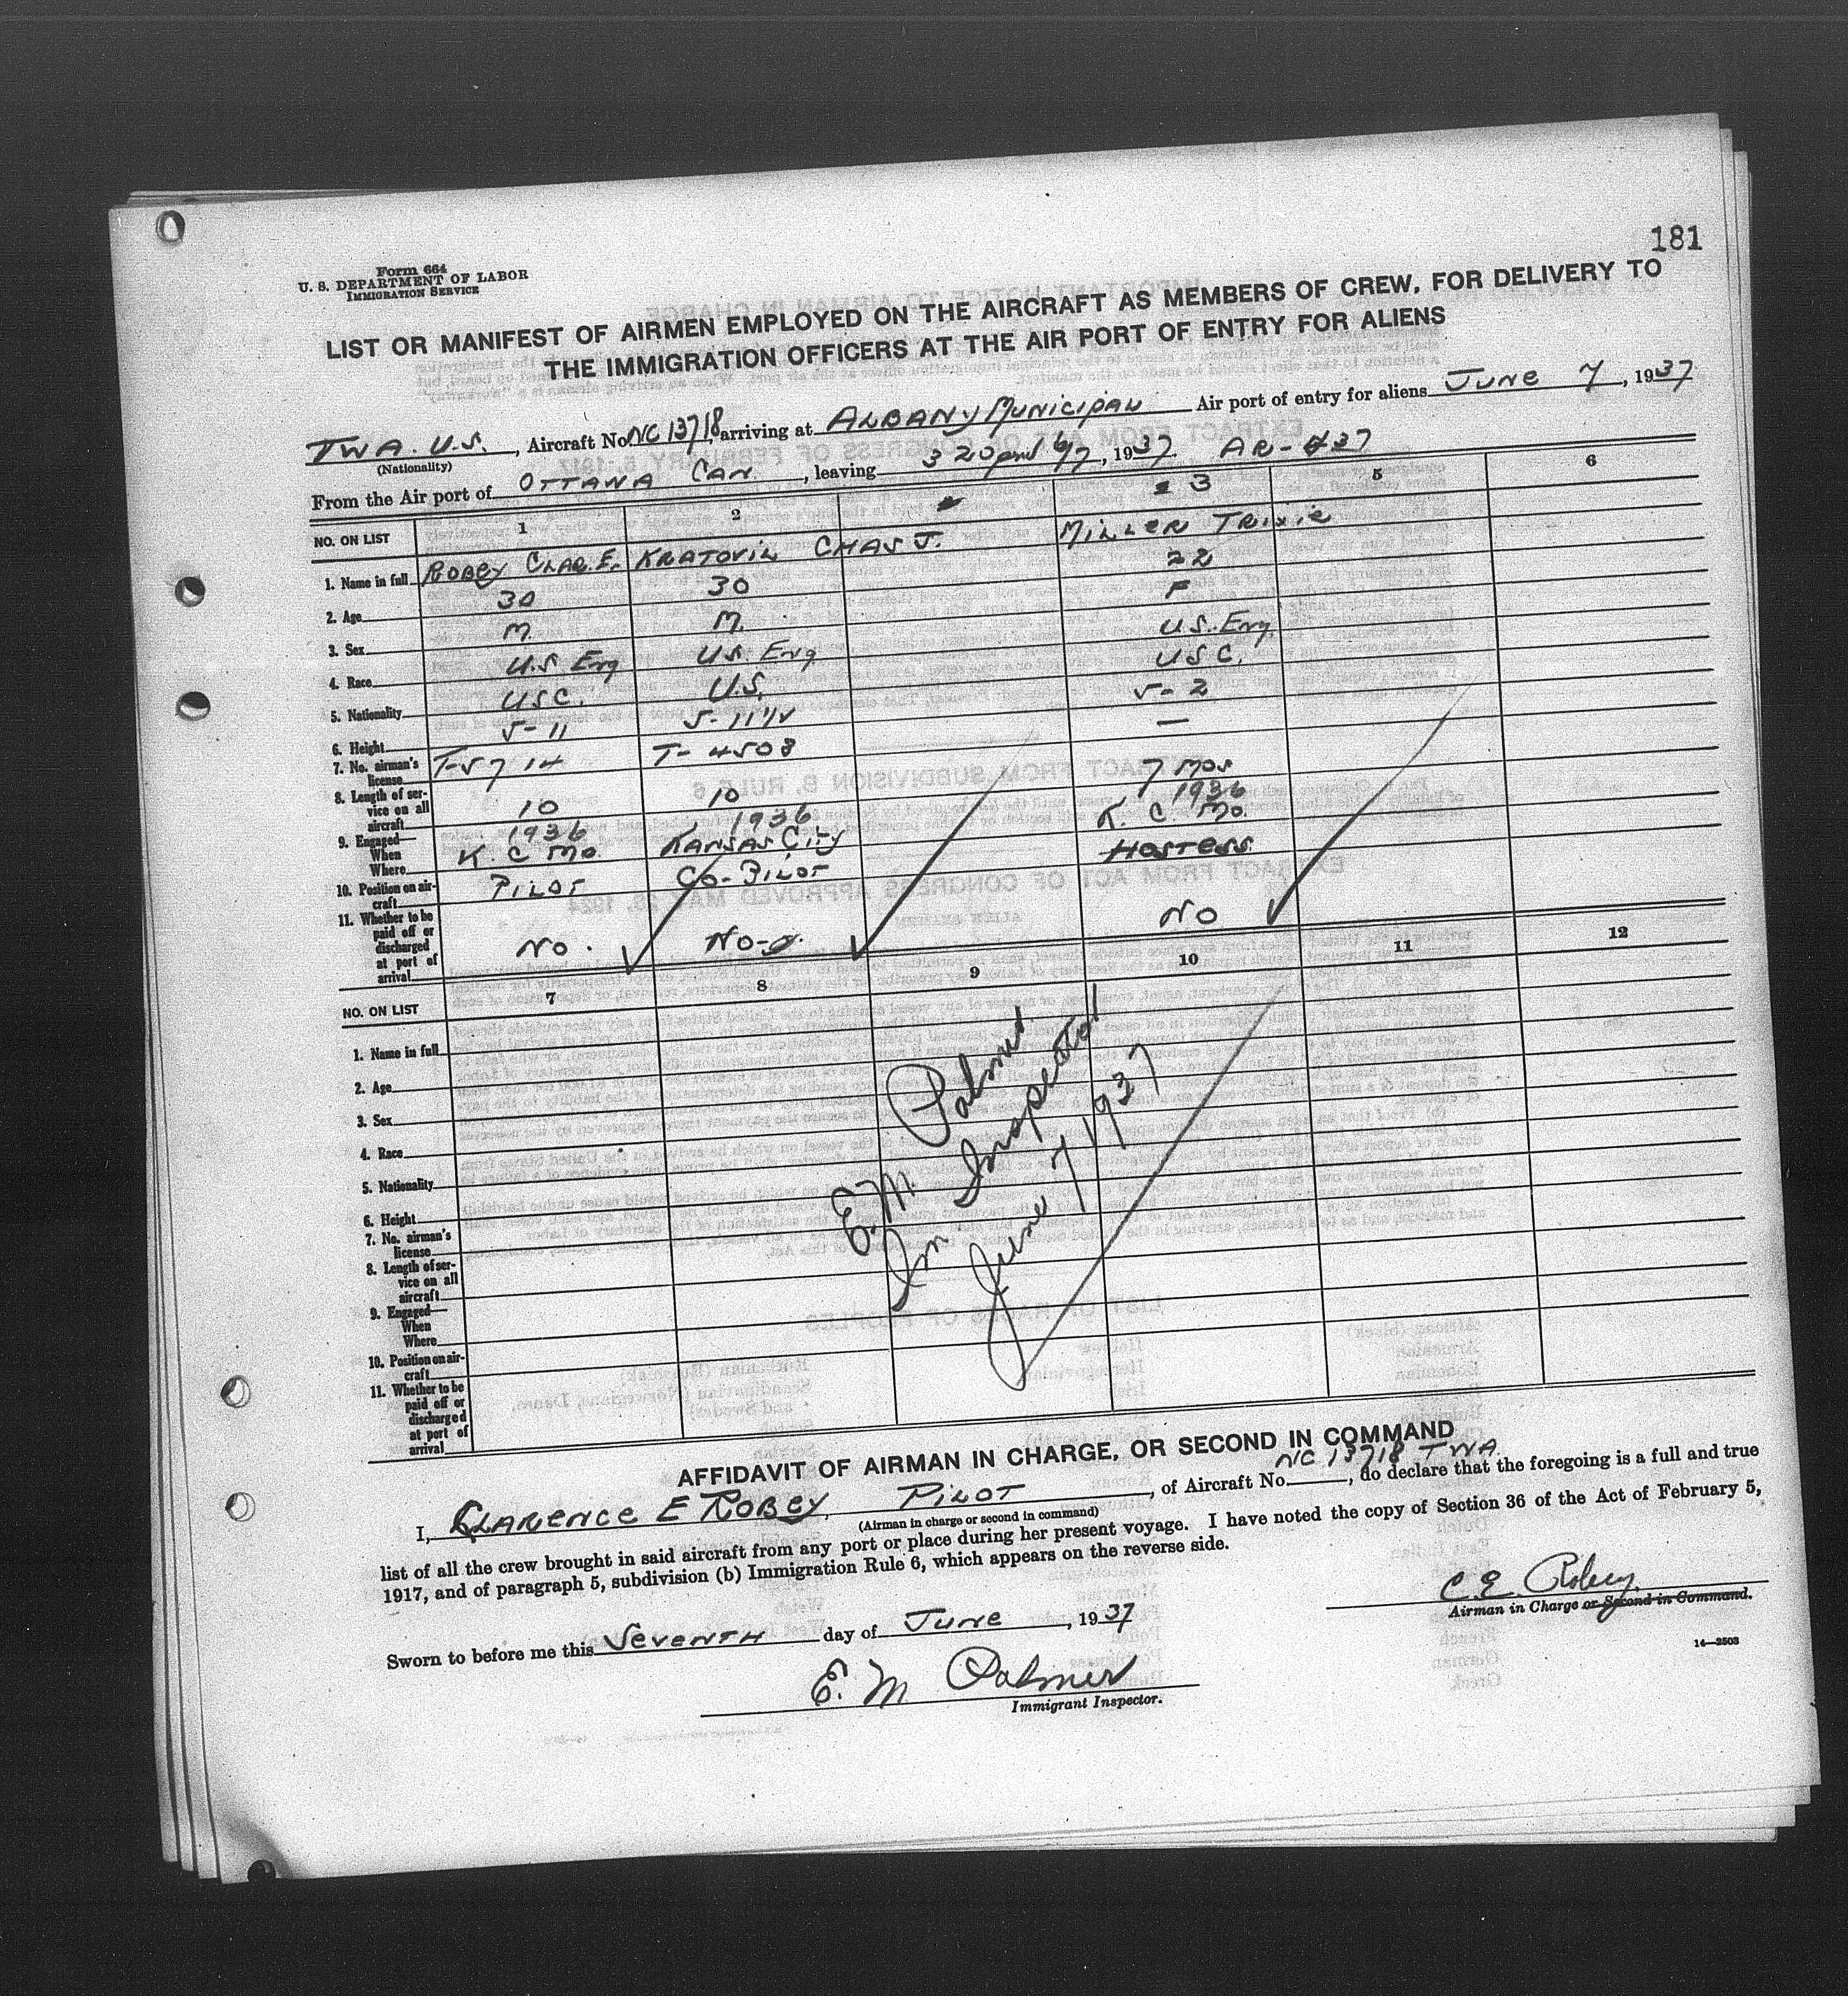 181
Form 664
U. S. DEPARTMENT OF LABOR
IMMIGRATION SERVICE
LIST OR MANIFEST OF AIRMEN EMPLOYED ON THE AIRCRAFT AS MEMBERS OF CREW, FOR DELIVERY TO
THE IMMIGRATION OFFICERS AT THE AIR PORT OF ENTRY FOR ALIENS
TWA. U.S., Aircraft No. NC 13718, arriving at ALBANY MUNICIPAL Air port of entry for aliens JUNE 7, 1937
(Nationality)
From the Air port of OTTAWA CAN., leaving 3 20 pm 6/7, 1937. AR-437
NO. ON LIST 1 2 3 5 6
1. Name in full ROBEY CLAR. E. KRATOVIL CHAS J. MILLER TRIXIE
2. Age 30 30 22
3. Sex M. M. F
4. Race U.S Eng U.S. Eng U.S. Eng.
5. Nationality USC. U.S. USC.
6. Height 5-11 5-11 1/2 5-2
7. No. airman's license T-5714 T-4508 —
8. Length of service on all aircraft 10 10 7 mos
9. Engaged— When 1936 1936 1936
Where K. C Mo. KANSAS CITY K. C. Mo.
10. Position on aircraft PILOT CO-PILOT HOSTESS
11. Whether to be paid off or discharged at port of arrival NO. NO NO
NO. ON LIST 7 8 9 10 11 12
1. Name in full
2. Age
3. Sex
4. Race
5. Nationality
6. Height
7. No. airman's license
8. Length of service on all aircraft
9. Engaged— When
Where
10. Position on aircraft
11. Whether to be paid off or discharged at port of arrival
E.M. Palmer
Im Inspector
June 7 1937
AFFIDAVIT OF AIRMAN IN CHARGE, OR SECOND IN COMMAND
I, CLARENCE E ROBEY, PILOT, of Aircraft No. NC 13718 TWA, do declare that the foregoing is a full and true
(Airman in charge or second in command)
list of all the crew brought in said aircraft from any port or place during her present voyage. I have noted the copy of Section 36 of the Act of February 5,
1917, and of paragraph 5, subdivision (b) Immigration Rule 6, which appears on the reverse side.
C E Robey
Airman in Charge or Second in Command.
Sworn to before me this SEVENTH day of JUNE, 1937
14—2503
E. M Palmer
Immigrant Inspector.